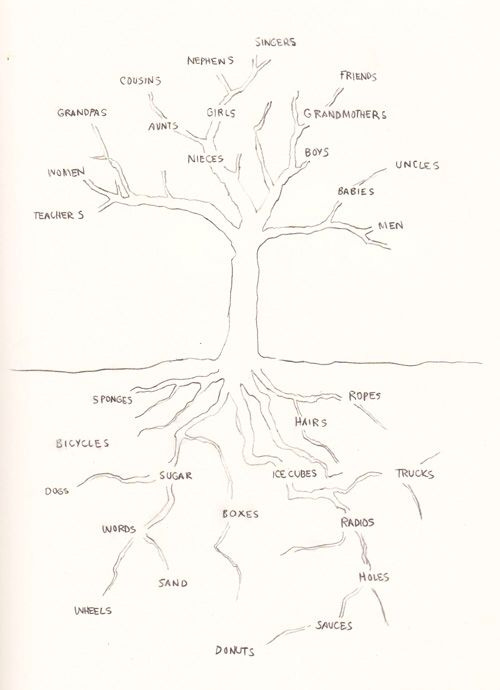 SINGERS
NEPHEWS
FRIENDS
COUSINS
GRANDPAS
GIRLS
GRANDMOTHERS
AUNTS
BOYS
NIECES
UNCLES
WOMEN
BABIES
TEACHERS
MEN
SPONGES
ROPES
HAIRS
BICYCLES
SUGAR
ICE CUBES
TRUCKS
DOGS
BOXES
WORDS
RADIOS
SAND
HOLES
WHEELS
SAUCES
DONUTS